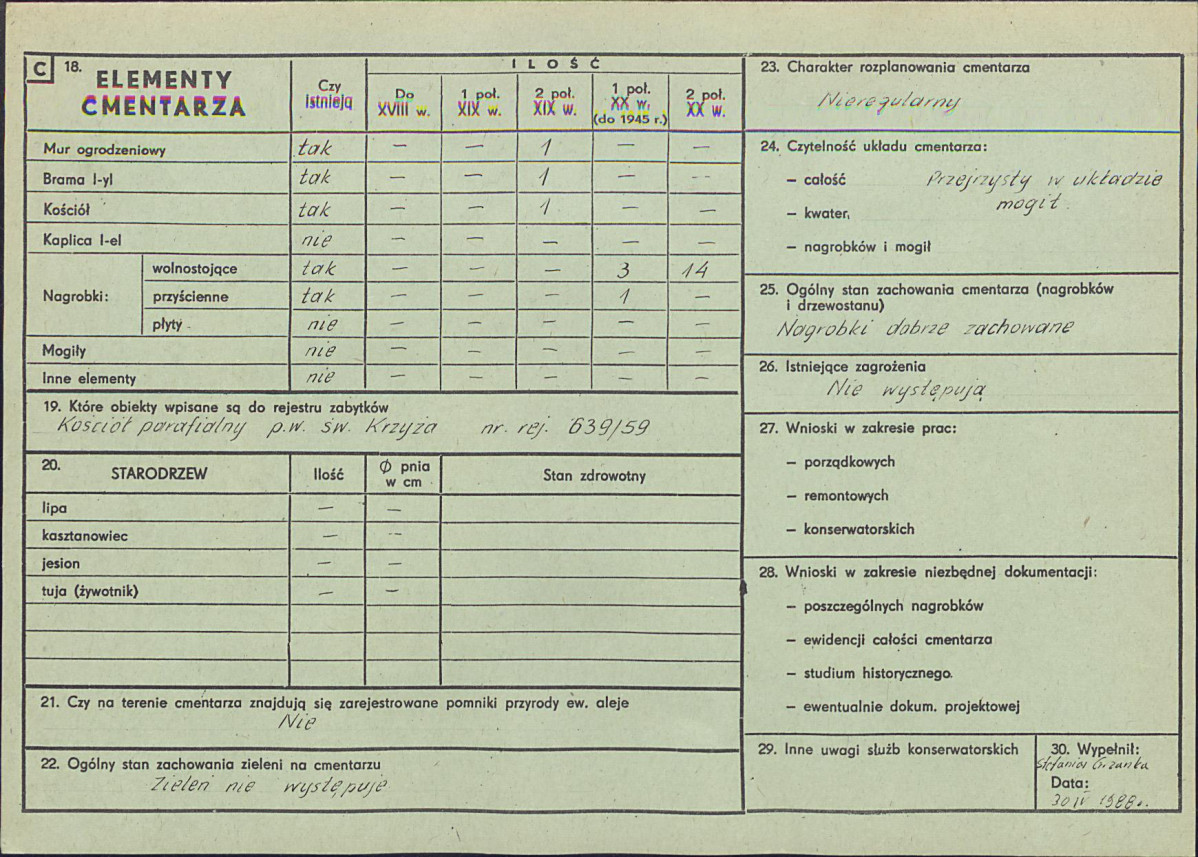 C 18. ELEMENTY CMENTARZA
Czy istnieją
I L O Ś Ć
Do XVIII w.
1 poł. XIX w.
2 poł. XIX w.
1 poł. XX w. (do 1945 r.)
2 poł. XX w.
Mur ogrodzeniowy tak — — 1 — —
Brama I-yl tak — — 1 — --
Kościół tak — — 1 — —
Kaplica I-el nie — — — — —
Nagrobki:
wolnostojące tak — — — 3 14
przyścienne tak — — — 1 —
płyty nie — — — — —
Mogiły nie — — — — —
Inne elementy nie — — — — —
19. Które obiekty wpisane są do rejestru zabytków
Kościół parafialny p.w. św. Krzyża nr. rej. 639/59
20. STARODRZEW Ilość Ø pnia w cm Stan zdrowotny
lipa — —
kasztanowiec — --
jesion — —
tuja (żywotnik) — —
21. Czy na terenie cmentarza znajdują się zarejestrowane pomniki przyrody ew. aleje
Nie
22. Ogólny stan zachowania zieleni na cmentarzu
Zieleń nie występuje
23. Charakter rozplanowania cmentarza
Nieregularny
24. Czytelność układu cmentarza:
– całość Przejrzysty w układzie
mogił.
– kwater,
– nagrobków i mogił
25. Ogólny stan zachowania cmentarza (nagrobków
i drzewostanu)
Nagrobki dobrze zachowane
26. Istniejące zagrożenia
Nie występują
27. Wnioski w zakresie prac:
– porządkowych
– remontowych
– konserwatorskich
28. Wnioski w zakresie niezbędnej dokumentacji:
– poszczególnych nagrobków
– ewidencji całości cmentarza
– studium historycznego.
– ewentualnie dokum. projektowej
29. Inne uwagi służb konserwatorskich
30. Wypełnił:
Stefania
Data:
30 IV 1988r.